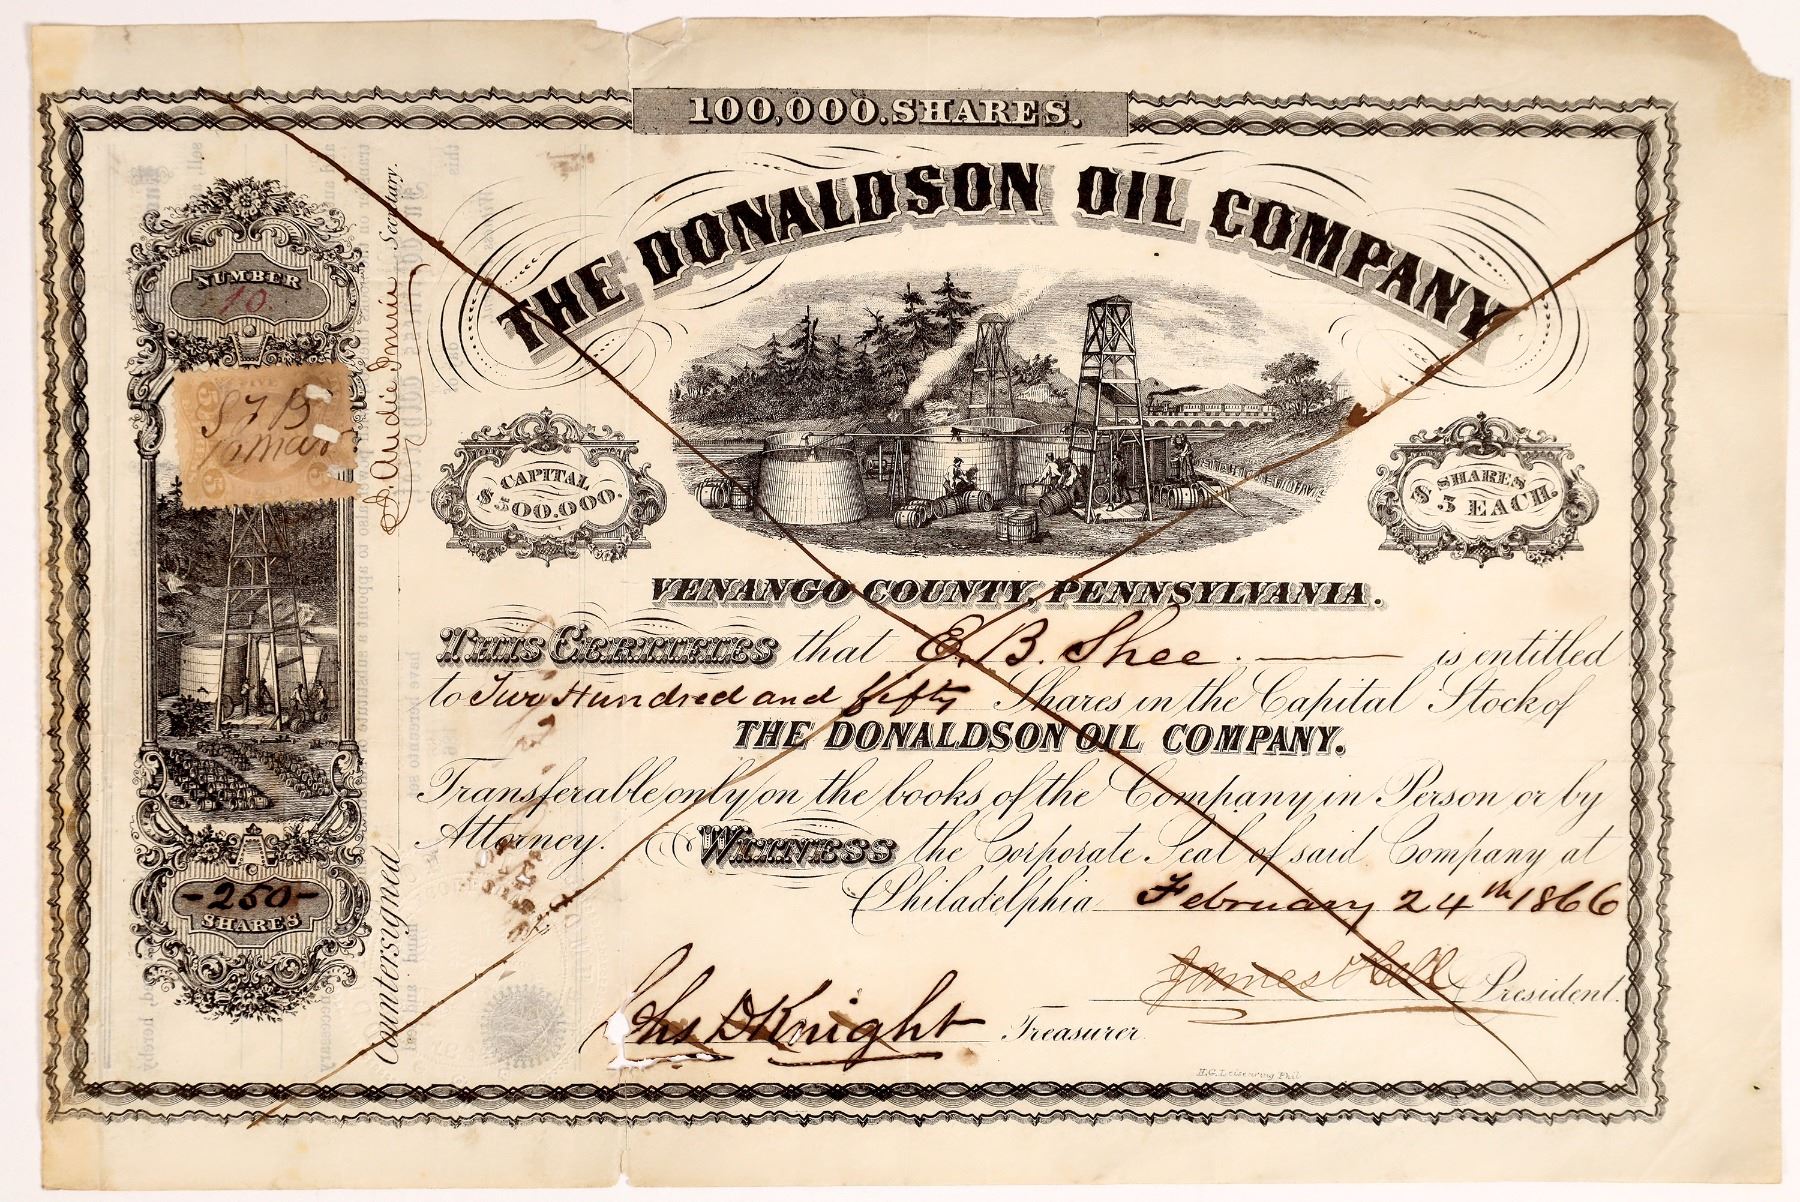 100,000.SHARES.
THE DONALDSON OIL COMPANY
NUMBER
10.
CAPITAL
$300.000.
SHARES
$3 EACH.
VENANGO COUNTY, PENNSYLVANIA.
THIS CERTIFIES that E. B. Shee. is entitled
to Two Hundred and fifty Shares in the Capital Stock of
THE DONALDSON OIL COMPANY.
Transferable only on the books of the Company in Person or by
Attorney. WITNESS the Corporate Seal of said Company at
Philadelphia February 24th 1866
-250-
SHARES
Countersigned Secretary.
James Hill President.
Chs D Knight Treasurer
H.G. Leisenring Phil